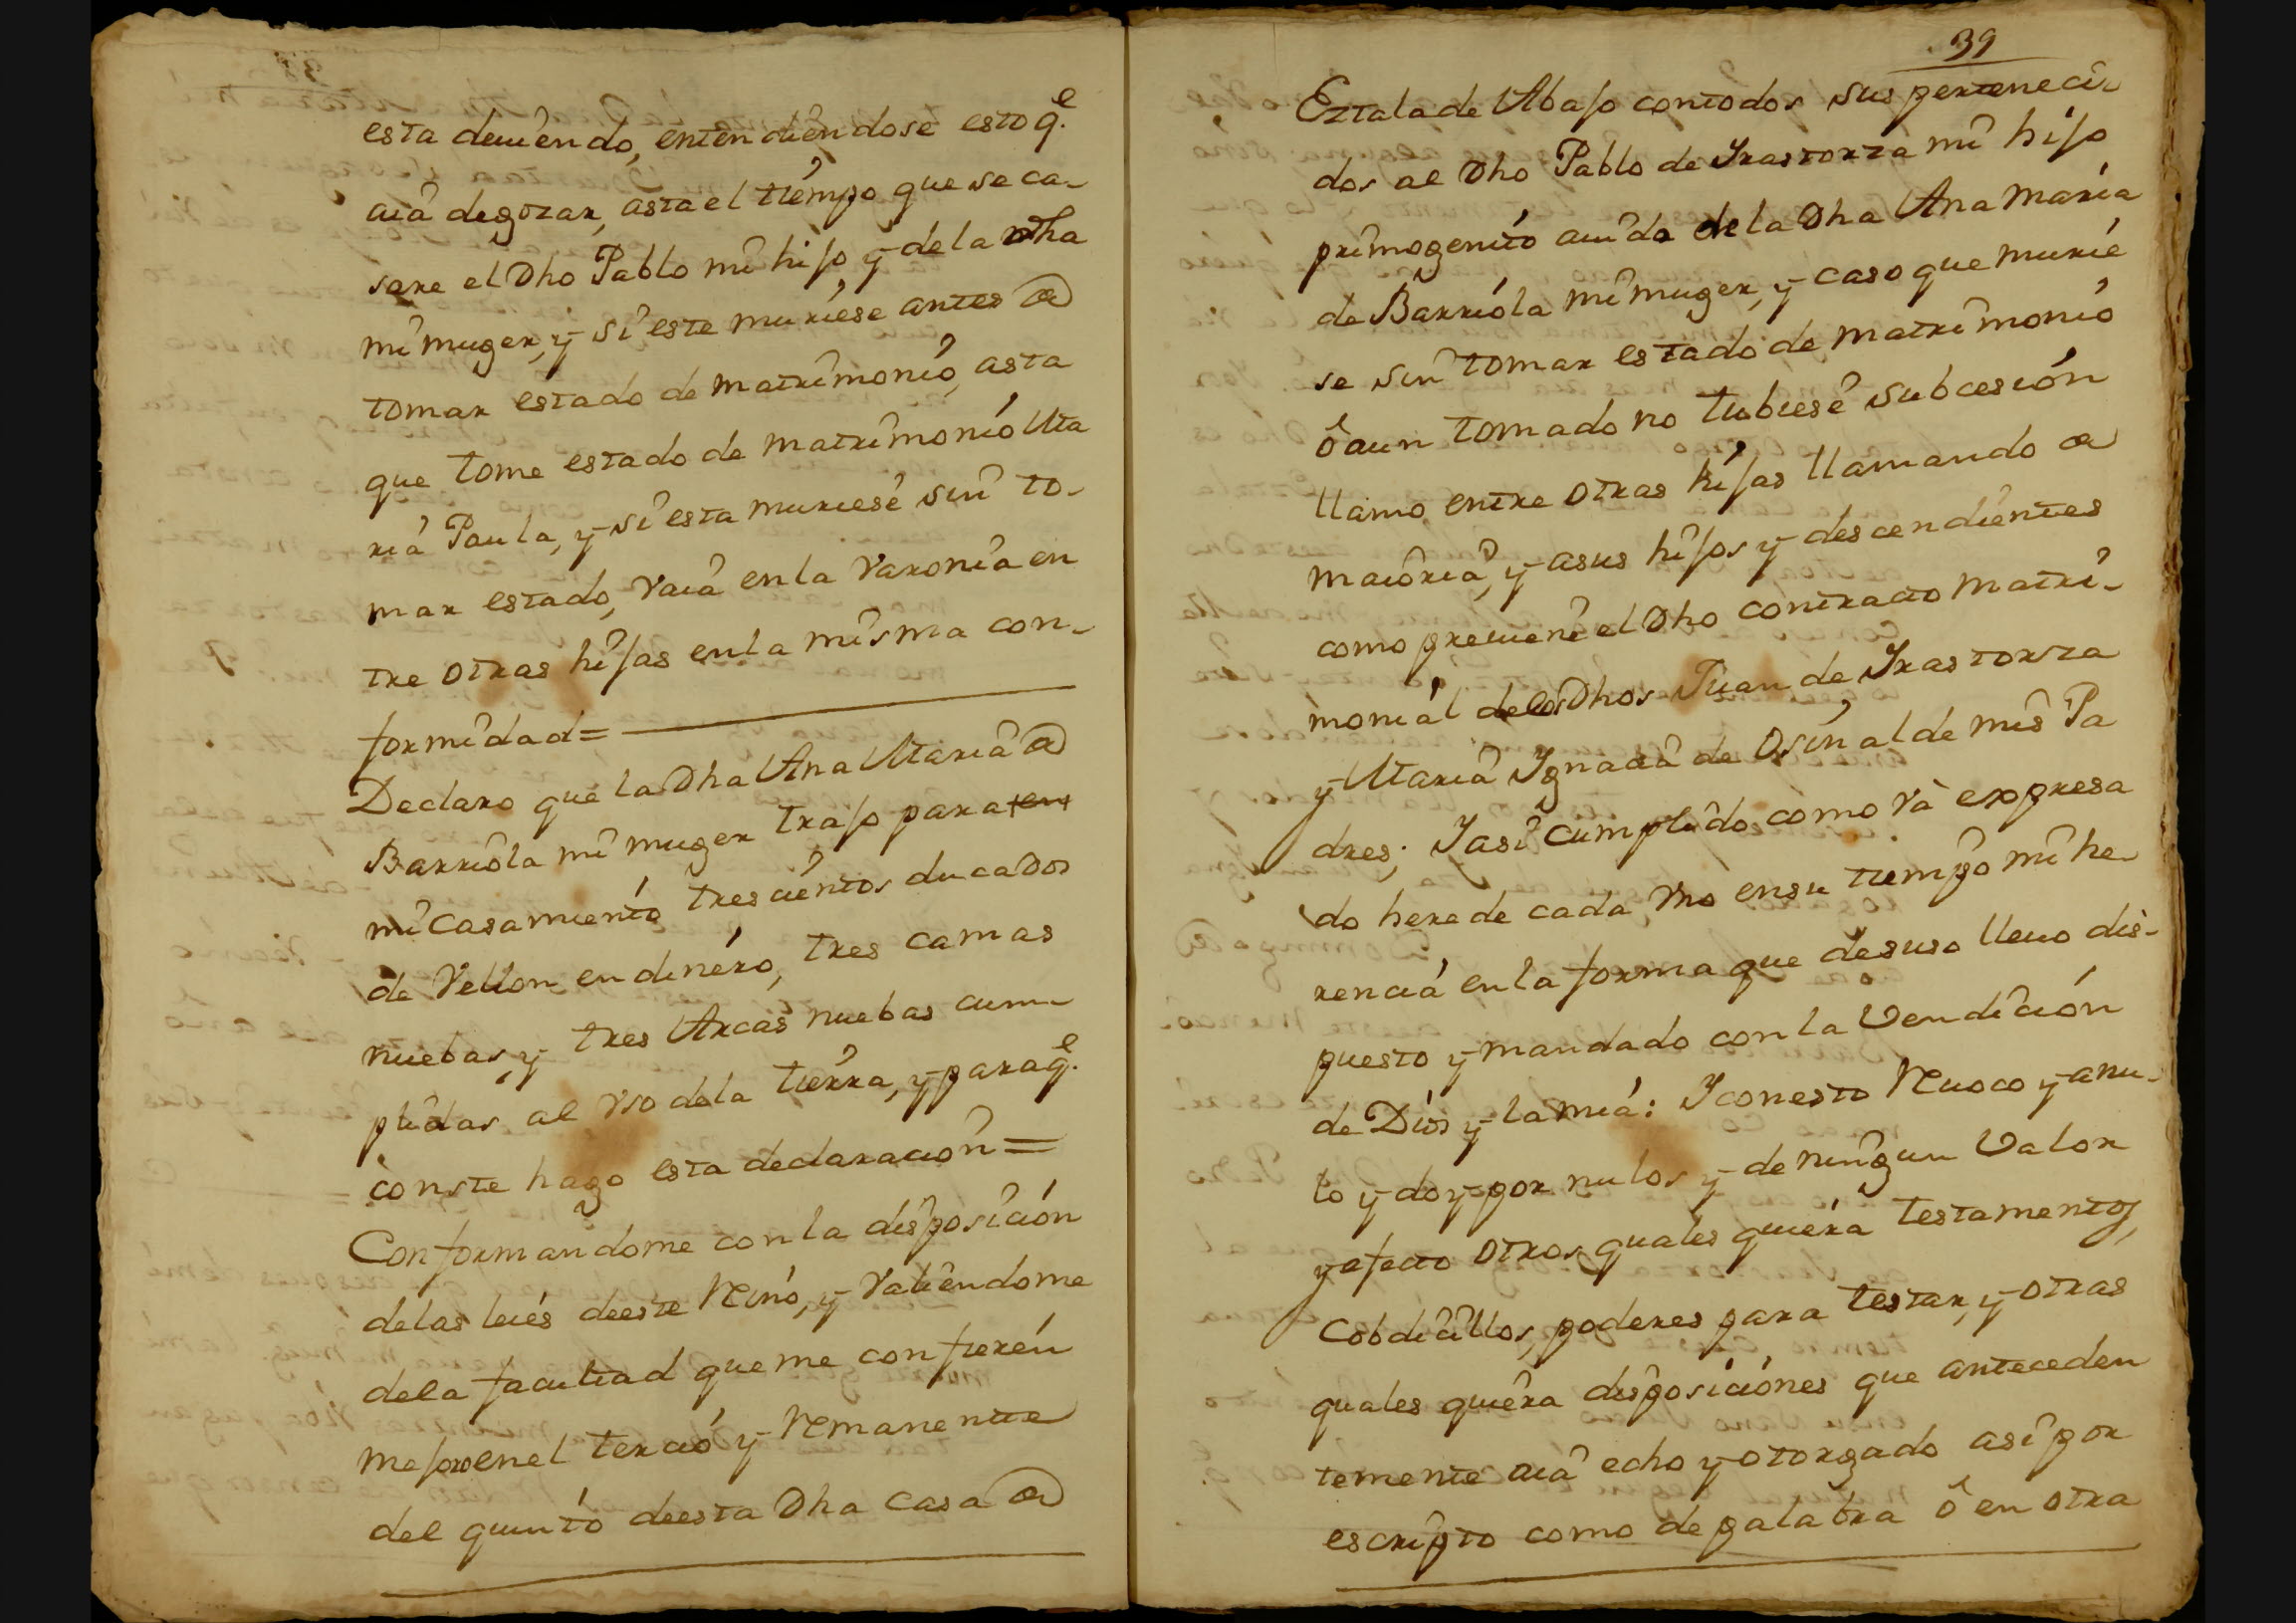 esta deuiendo, entendiendose esto q.e
aiâ degozar, asta el tiempo que se ca-
sare el Dho Pablo mi hijo, y de la Dha
mi muger, y si este muriese antes de
tomar estado de matrimonio, asta
que tome estado de matrimonio Ma
ria Paula, y si esta muriese sin to-
mar estado, vaiâ en la varonia en
tre otras hijas en la misma con-
formidad =
Declaro que la Dha Ana Maria de
Barriola mi muger trajo para
mi Casamiento trescientos ducados
de Vellon en dinero, tres camas
nuebas, y tres Arcas nuebas cum-
plidas al vso dela tierra, y para q.e
conste hago esta declaracion =
Conformandome con la disposicion
delas leies deeste Reino, y valiendome
dela facultad que me confieren
mejoro enel tercio y Remanente
del quinto deesta Dha Casa de
39
Eztala de Abajo contodos sus perteneci-
dos al Dho Pablo de Yrastorza mi hijo
primogenito auido de la Dha Ana Maria
de Barriola mi muger, y caso que murie
se sin tomar estado de matrimonio
ô aun tomado no tubiese subcesion
llamo entre otras hijas llamando a
maioria, y asus hijos y descendientes
como preuiene el Dho contracto matri-
monial de los Dhos Juan de Yrastorza
y Maria Ygnacia de Osinalde mis Pa
dres; Yasi cumplido como và expresa
do herede cada vno ensu tiempo mi he-
rencia en la forma que desuso lleuo dis-
puesto y mandado con la Vendicion
de Dios y la mia: Y conesto Reuoco y anu-
lo y doy por nulos y de ningun Valor
y efecto otros quales quiera testamentos,
Cobdicillos, poderes para testar, y otras
quales quiera disposiciones que anteceden
temente aiâ echo y otorgado asi por
escripto como de palabra ô en otra